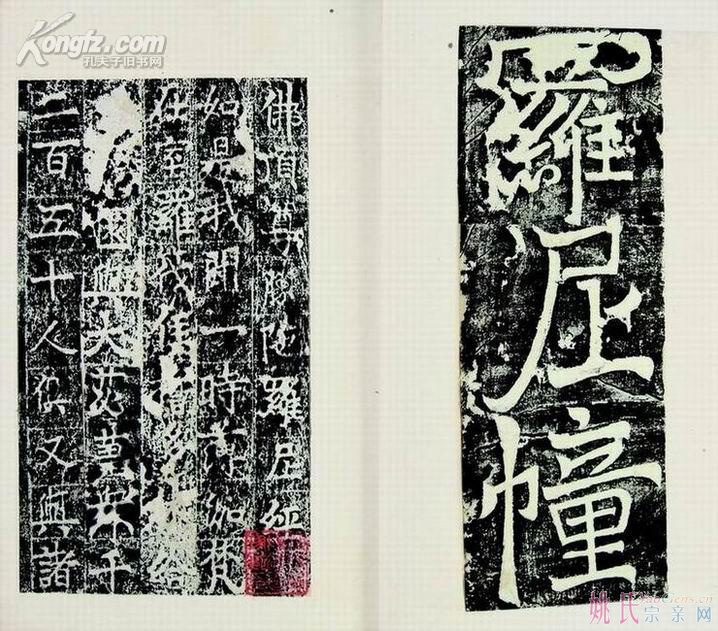 Kongfz.com
孔夫子旧书网
羅尼幢
佛頂尊勝陁羅尼經
如是我聞一時薄伽梵
在室羅伐住誓多林給
園與大苾蒭衆千
二百五十人俱又與諸
姚氏宗亲网